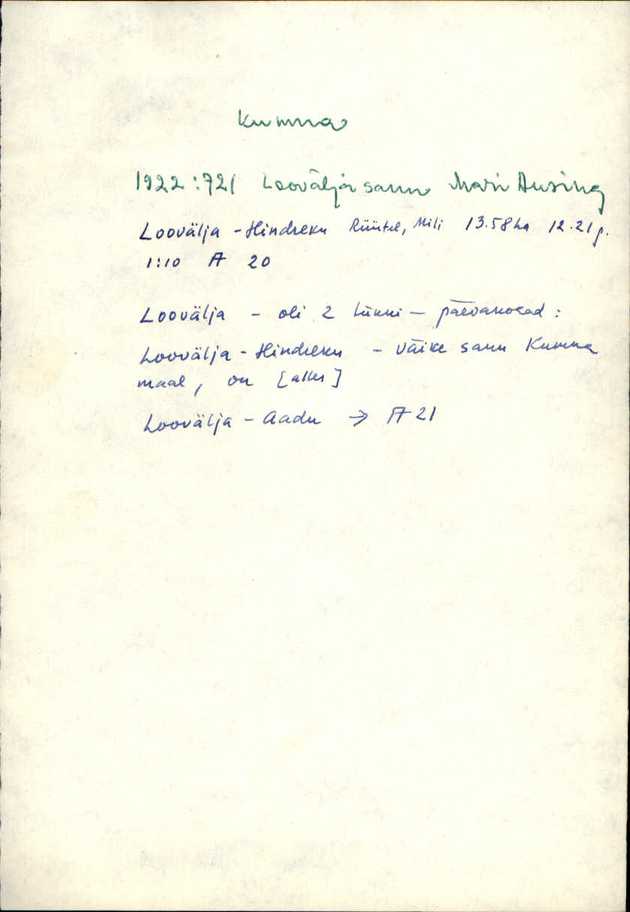 Kumna
1922:721 Looväljä saun Mari Ausing
Loovälja - Hindreku Rüütel, Mili 13.58 ha 12.21 p.
1:10 A 20
Loovälja - oli 2 tükki - päevakohad:
Loovälja - Hindreku - väike saun Kumna
maal, on [alles]
Loovälja - Aadu → A 21